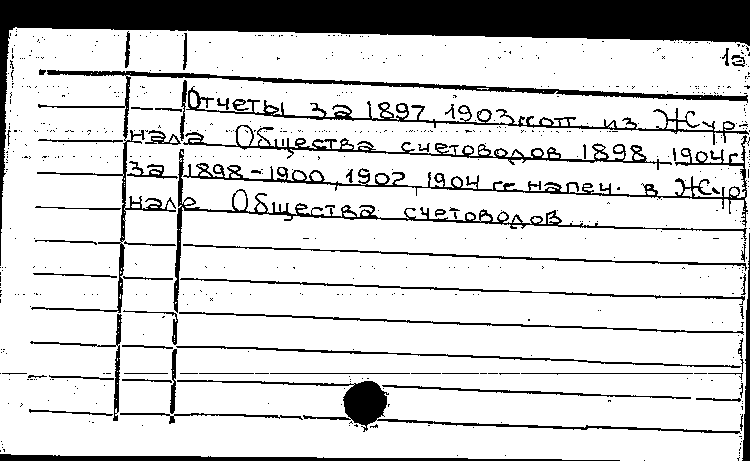 1а
Отчеты за 1897, 1903 гг. отт. из Жур-
нала Общества счетоводов 1898, 1904г.
за 1898-1900, 1902, 1904 гг. напеч. в Жур
нале Общества счетоводов....